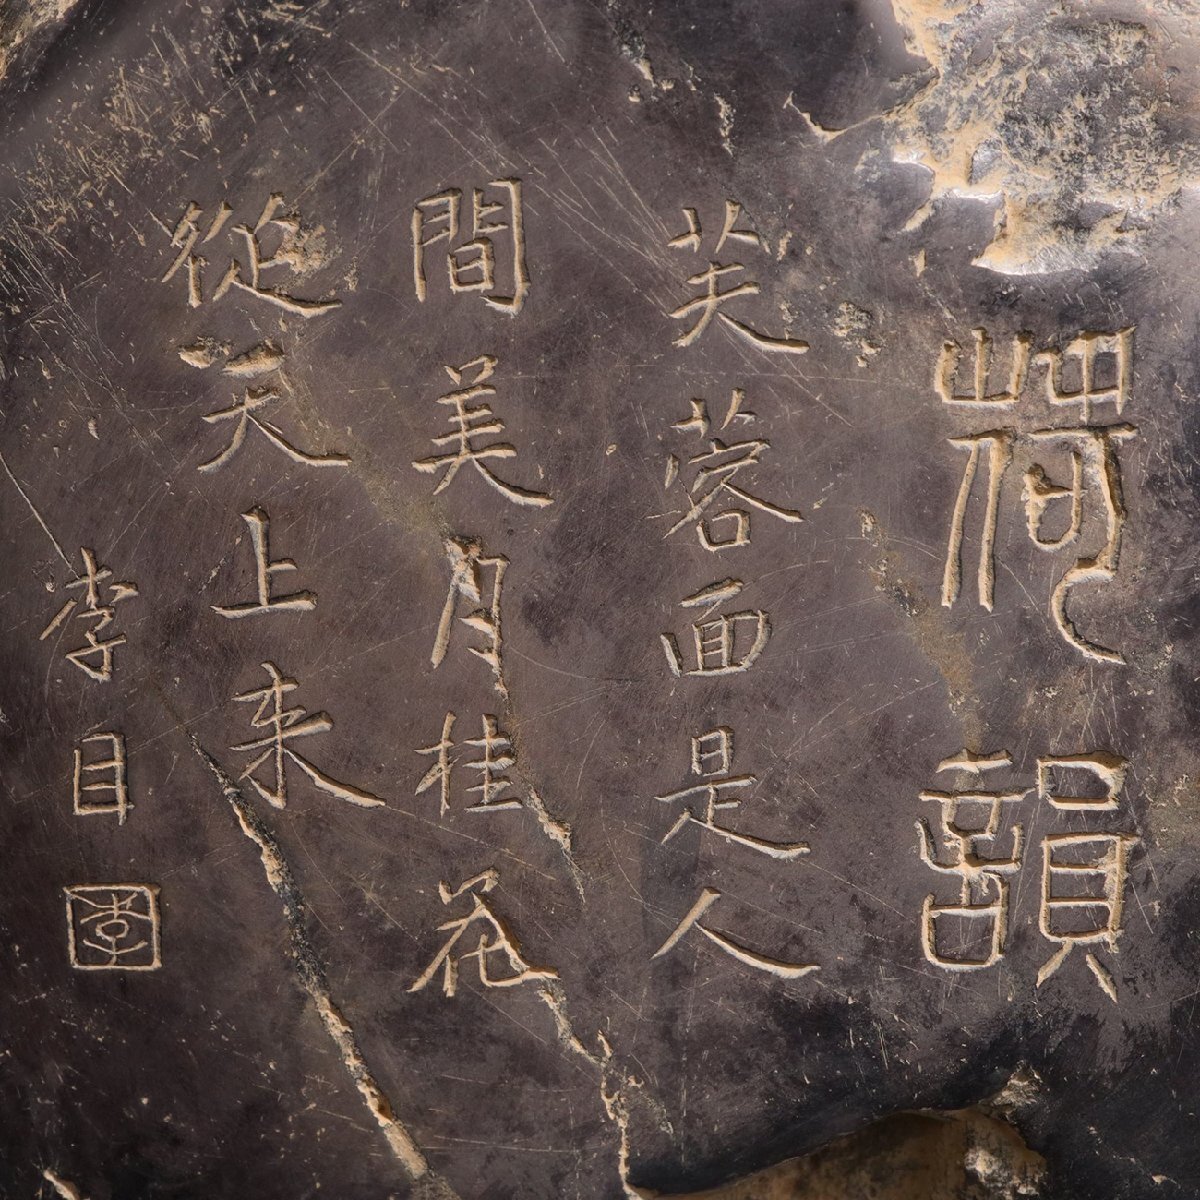 荷韻
芙蓉面是人
間美月桂花
從天上来
李目